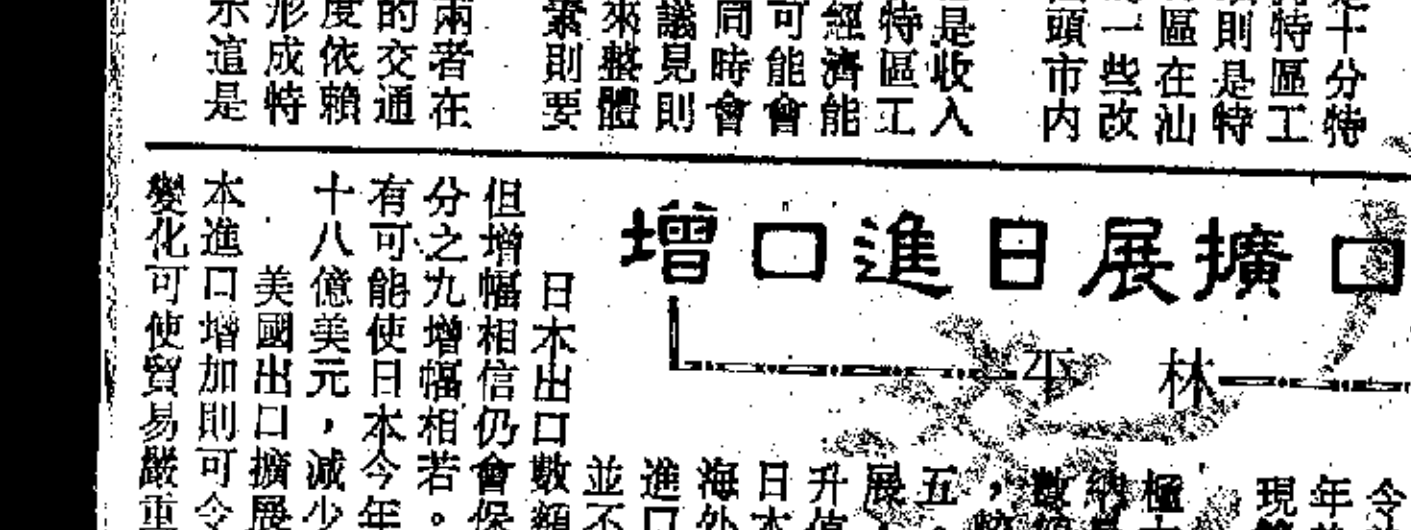 十分特
特區工
則是特
區在汕
一些改
頭市內
是收入
特區工
經濟能
可能會
同時會
議見則
來整體
素則要
兩者在
的交通
度依賴
形成特
示這是
口擴展日進口增
林平
今
年
現
樞
數
五
展
升值
日本
海外
進口
並不
日本出口數額
但增幅相信仍會保
分之九增幅相若。
有可能使日本今年
十八億美元，減少
美國出口擴展
本進口增加則可令
變化可使貿易嚴重